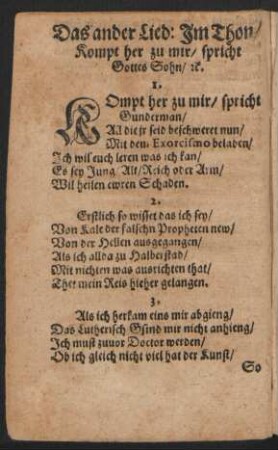 Das ander Lied: Im Thon/
Kompt her zu mir/ spricht
Gottes Sohn/ ꝛc.
1.
KOmpt her zu mir/ spricht
Gunderman/
All die jr seid beschweret nun/
Mit den Exorcismo beladen/
Ich wil euch leren was ich kan/
Es sey Jung Alt/ Reich oder Arm/
Wil heilen ewren Schaden.
2.
Erstlich so wisset das ich sey/
Von Kale der falschn Propheten new/
Von der Hellen ausgegangen/
Als ich allda zu Halberstad/
Mit nichten was ausrichten that/
Thet mein Reis hieher gelangen.
3.
Als ich herkam eins mir abgieng/
Das Lutherisch Gsind mir nicht anhieng/
Ich must zuuor Doctor werden/
Ob ich gleich nicht viel hat der Kunst/
So